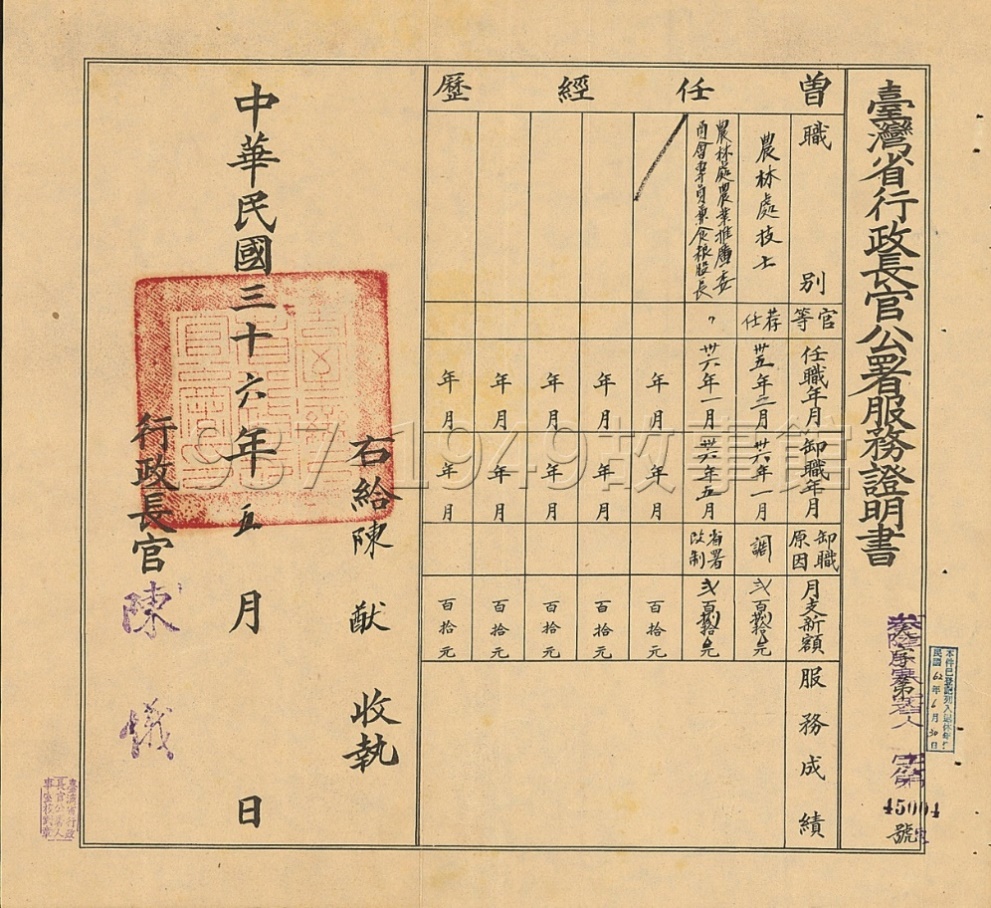 臺灣省行政長官公署服務證明書
字第
45004
號
本件已登記列入退休年資
民國62年6月30日
曾任經歷
職別
官等
任職年月
卸職年月
卸職原因
月支薪額
服務成績
農林處技士
荐任
卅五年二月
卅六年一月
調
弍百捌拾元
農林處農業推廣委
員會專員兼食糧股長
〃
卅六年一月
卅六年五月
省署改制
弍百捌拾元
年月
年月
百拾元
年月
年月
百拾元
年月
年月
百拾元
年月
年月
百拾元
年月
年月
百拾元
右給陳猷收執
中華民國三十六年五月日
行政長官陳儀
臺灣省行政
長官公署人
事室校對章
987/1949故事館